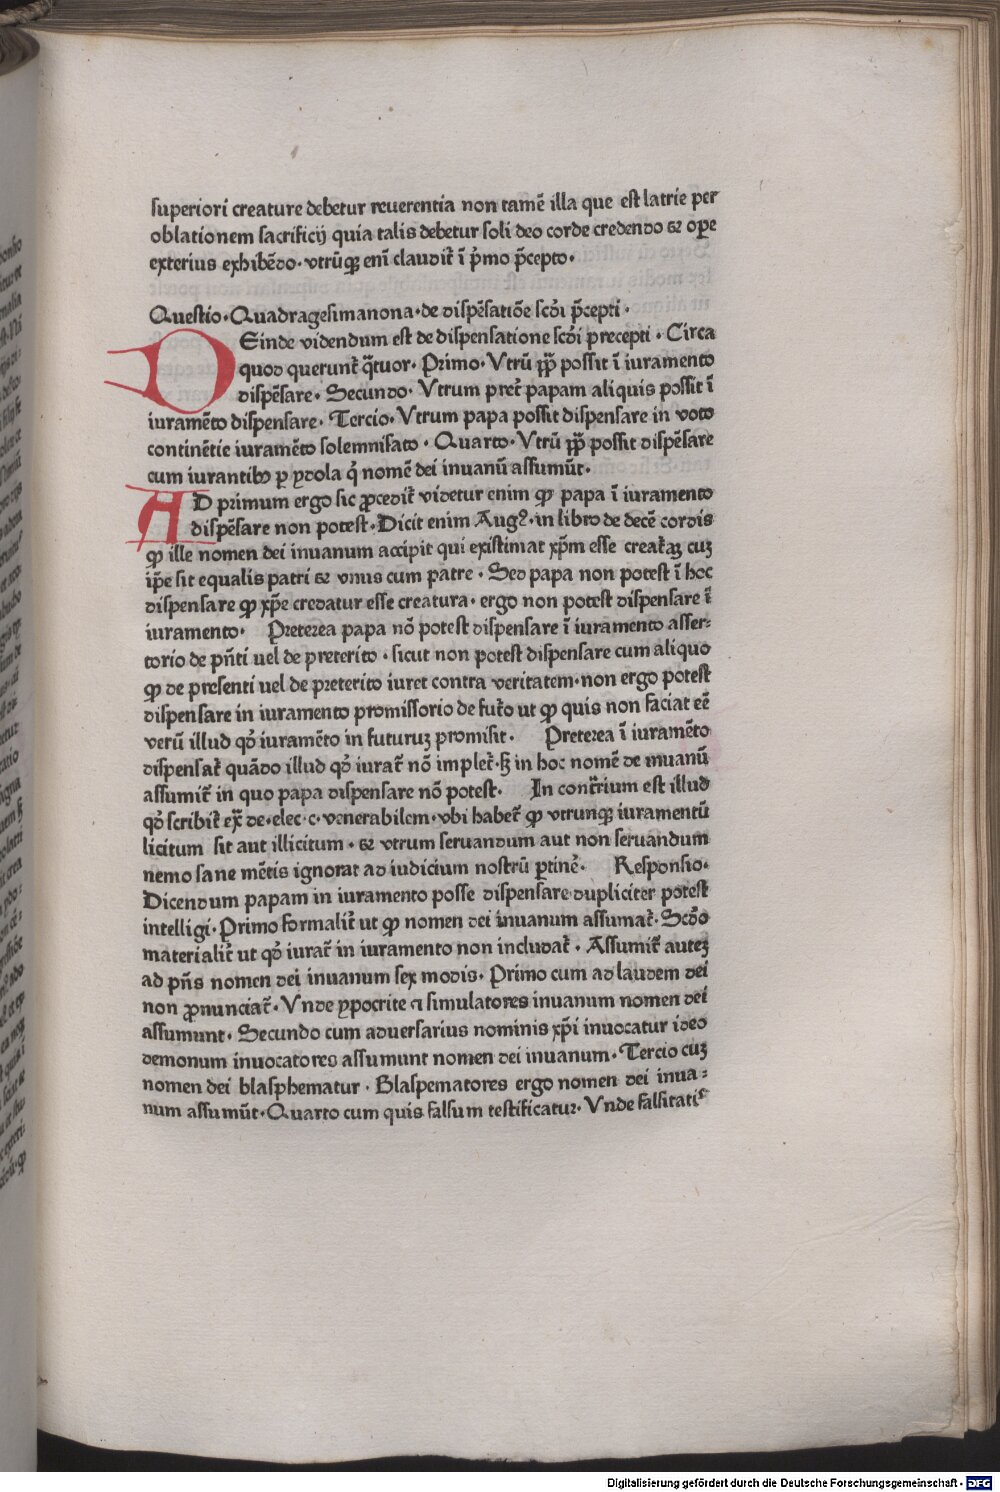 superiori creature debetur reuerentia non tamē illa que est latrie per
oblationem sacrificij quia talis debetur soli deo corde credendo ꝛ oꝑe
exterius exhibēdo · vtrūqꝫ enī claudit̄ ī p̄mo p̄cepto ·
Questio · Quadragesimanona · de dispēsatiōe scd̄i p̄cepti ·
DEinde videndum est de dispensatione scd̄i precepti · Circa
quod querunt̄ q̄tuor · Primo · Vtrū pp̄ possit ī iuramento
dispēsare · Secundo · Vtrum pret̄ papam aliquis possit ī
iuramēto dispensare · Tercio · Vtrum papa possit dispensare in voto
continētie iuramēto solemnisato · Quarto · Vtrū pp̄ possit dispēsare
cum iurantibꝰ ꝑ ydola q̇ nomē dei inuanū assumūt ·
AD primum ergo sic ꝓcedit̄ videtur enim ꝙ papa ī iuramento
dispēsare non potest · Dicit enim Augꝰ · in libro de decē cordis
ꝙ ille nomen dei inuanum accipit qui existimat xp̄m esse creat̄aꝫ cuꝫ
ip̄e sit equalis patri ꝛ vnus cum patre · Sed papa non potest ī hoc
dispensare ꝙ xp̄e credatur esse creatura · ergo non potest dispensare ī
iuramento · Preterea papa nō potest dispensare ī iuramento asser⸗
torio de pn̄ti uel de preterito · sicut non potest dispensare cum aliquo
ꝙ de presenti uel de preterito iuret contra veritatem · non ergo potest
dispensare in iuramento promissorio de fut̄o ut ꝙ quis non faciat eē
verū illud qd̓ iuramēto in futuruꝫ promisit · Preterea ī iuramēto
dispensat̄ quādo illud qd̓ iurat̄ nō implet̄ · ſꝫ in hoc nomē de inuanū
assumit̄ in quo papa dispensare nō potest · In cont̄rium est illud
qd̓ scribit̄ ex̄ de · elec · c · venerabilem · vbi habet̄ ꝙ vtrunqꝫ iuramentū
licitum sit aut illicitum · ꝛ vtrum seruandum aut non seruandum
nemo sane mētis ignorat ad iudicium nostrū ꝑtinē · Responsio ·
Dicendum papam in iuramento posse dispensare dupliciter potest
intelligi · Primo formalit̄ ut ꝙ nomen dei inuanum assumat̄ · Scd̄o
materialit̄ ut qd̓ iurat̄ in iuramento non includat̄ · Assumit̄ auteꝫ
ad pn̄s nomen dei inuanum sex modis · Primo cum ad laudem dei
non ꝓnunciat̄ · Vnde ypocrite ⁊ simulatores inuanum nomen dei
assumunt · Secundo cum aduersarius nominis xp̄i inuocatur ideo
demonum inuocatores assumunt nomen dei inuanum · Tercio cuꝫ
nomen dei blasphematur · Blaspematores ergo nomen dei inua⸗
num assumūt · Quarto cum quis falsum testificatur · Vnde falsitatis
Digitalisierung gefördert durch die Deutsche Forschungsgemeinschaft - DFG